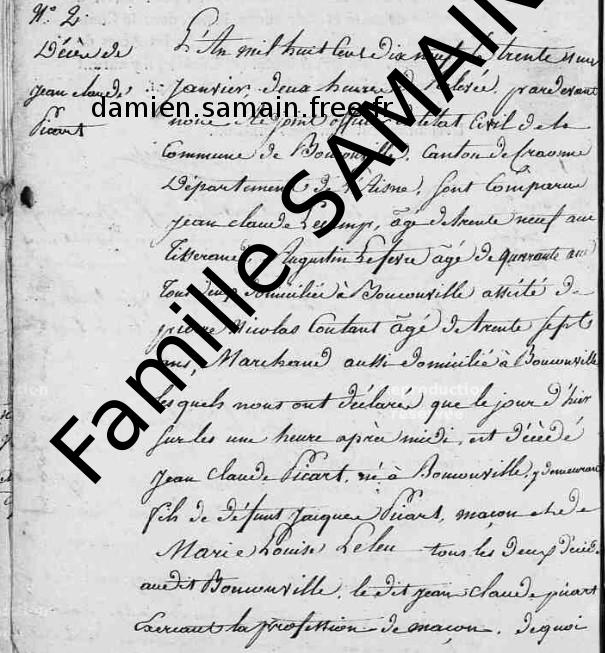 N.° 2
Décès de
jean claude
Picart
L'An mil huit cent dix neuf le trente un
janvier, deux heures de Relevée, pardevant
nous adjoint officier d'Etat Civil de la
Commune de Bouconville, Canton de Craonne
Département de l'Aisne, sont Comparu
jean claude Lecamp, âgé de trente neuf ans
tisserand Augustin Lefevre âgé de quarante ans
tous deux domicilié à Bouconville assité de
pierre Nicolas Coutant âgé de trente sept
ans, Marchand aussi domicilié à Bouconville
lesquels nous ont déclaré que le jour d'hier
sur les une heure après midi, est décédé
jean claude Picart, né à Bouconville, y demeurant
fils de défunt jacques Picart, maçon et de
Marie Louise Leleu tous les deux décédé
audit Bouconville, le dit jean claude picart
Exercant la profession de maçon. de quoi
damien.samain.free.fr
Famille SAMAIN
Reproduction
réservée